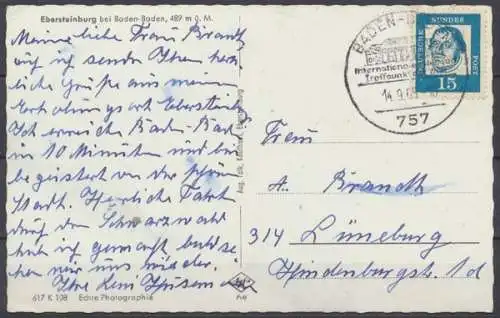 Ebersteinburg bei Baden-Baden, 489 m ü. M.
Meine liebe Frau Brandt
ich sende Ihnen herz-
liche Grüße aus mein
Erholungsort Eberstein
Ich erreiche Baden-Bad
in 10 Minuten und bin
begeistert von der schön
Stadt. Herrliche Fahrt
durch den Schwarzwald
hab ich gemacht bald se-
hen wir uns wieder.
Ihre Leni
617 K 108 Echte Photographie
Aug.
BADEN-B
Internationaler
Treffpunkt
14.9.6
757
DEUTSCHE BUNDESPOST
15
Frau
A. Brandt
314 Lüneburg
Hindenburgstr. 1d